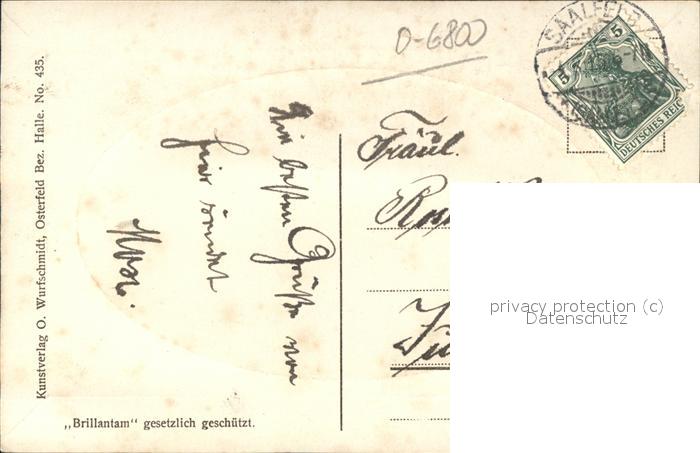 D-6800
SAALFELD
5
5
DEUTSCHES REICH
Kunstverlag O. Wurfschmidt, Osterfeld Bez. Halle. No. 435.
Die besten Grüße von
hier sendet
Fräul.
privacy protection (c)
Datenschutz
„Brillantam“ gesetzlich geschützt.